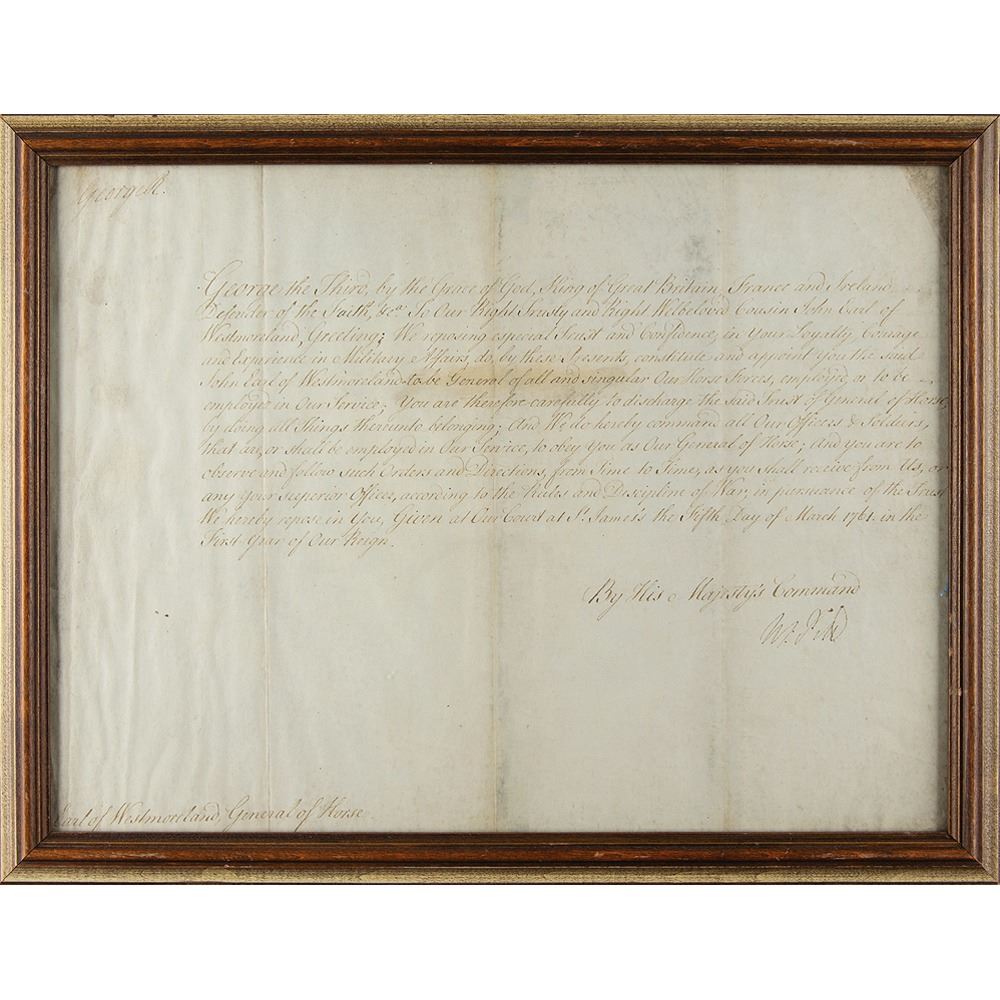 George R.
George the Third, by the Grace of God, King of Great Britain, France and Ireland,
Defender of the Faith, &ca. To Our Right Trusty and Right Welbelov'd Cousin John Earl of
Westmoreland, Greeting; We reposing especial Trust and Confidence, in Your Loyalty, Courage
and Experience in Military Affairs, do, by these Presents, constitute and appoint You the said
John Earl of Westmoreland to be General of all and singular Our Horse Forces, employ'd, or to be
employed in Our Service; You are therefore carefully to discharge the said Trust of General of Horse,
by doing all Things thereunto belonging; And We do hereby command all Our Officers & Soldiers,
that are, or shall be employed in Our Service, to obey You as Our General of Horse; And You are to
observe and follow such Orders and Directions, from Time to Time, as you shall receive from Us, or
any Your Superior Officer, according to the Rules and Discipline of War, in pursuance of the Trust
We hereby repose in You, Given at Our Court at St. James's the Fifth Day of March 1761. in the
First Year of Our Reign.
By His Majesty's Command
W. Pitt
Earl of Westmoreland, General of Horse